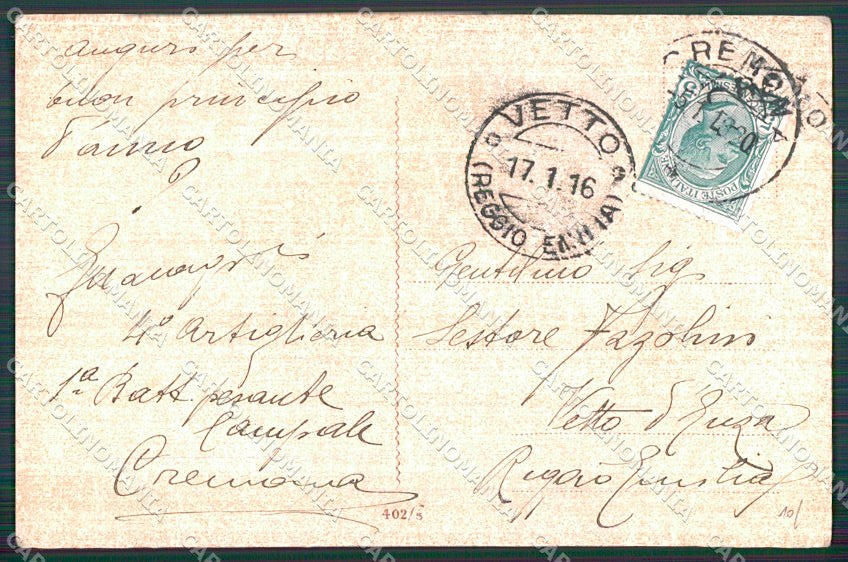 auguri per
buon principio
d'anno
4º Artiglieria
1ª Batt. pesante
Campale
Cremona
402/5
VETTO
17.1.16
(REGGIO EMILIA)
CREMONA
POSTE ITALIANE
Gentilmo Sig
Sestore Fazolini
Vetto d'Enza
Reggio Emilia
10/
CARTOLINOMANIA